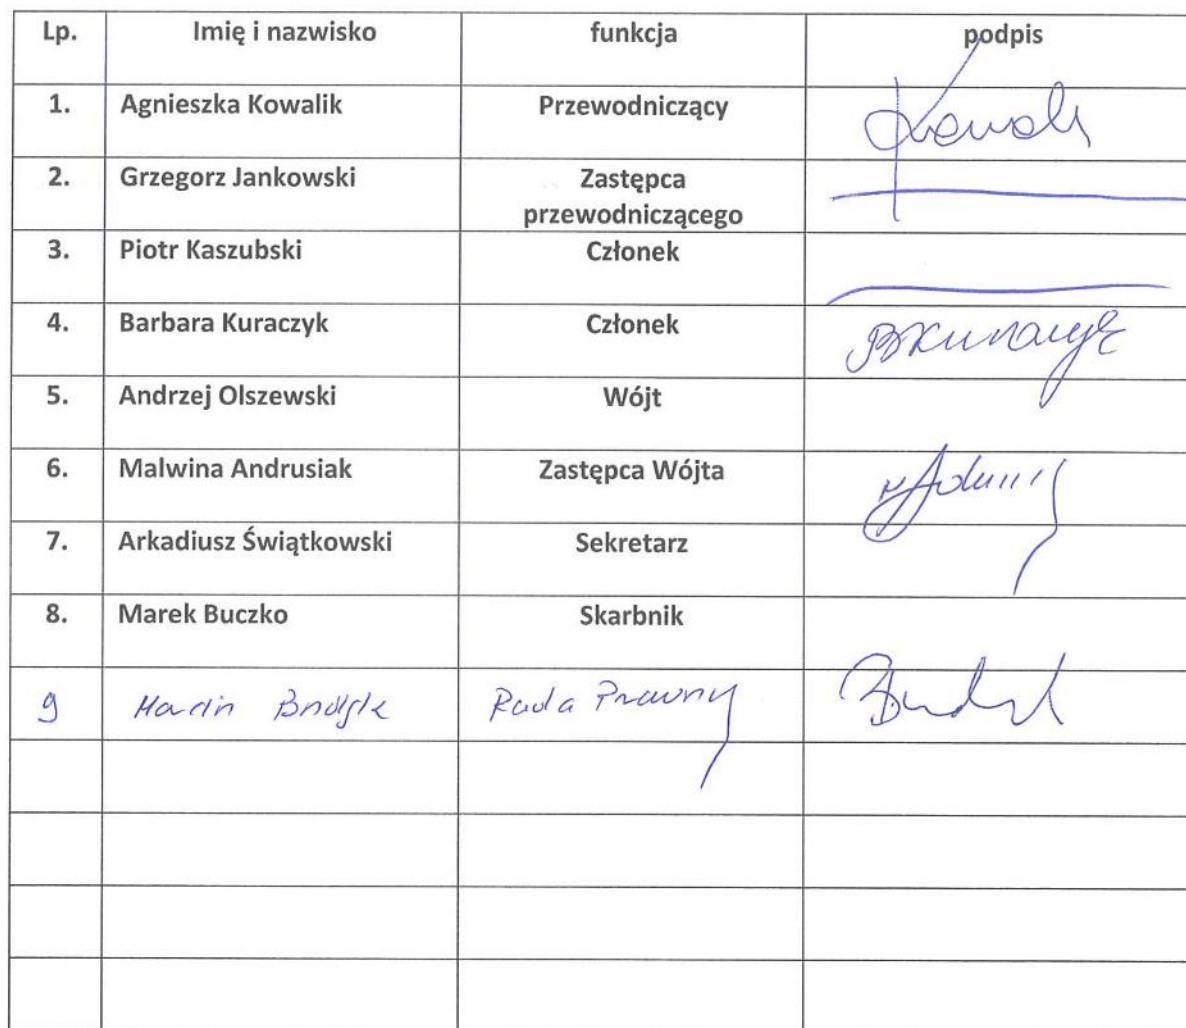 Lp. Imię i nazwisko funkcja podpis
1. Agnieszka Kowalik Przewodniczący
2. Grzegorz Jankowski Zastępca
przewodniczącego
3. Piotr Kaszubski Członek
4. Barbara Kuraczyk Członek
5. Andrzej Olszewski Wójt
6. Malwina Andrusiak Zastępca Wójta
7. Arkadiusz Świątkowski Sekretarz
8. Marek Buczko Skarbnik
9 Marcin Radca Prawny